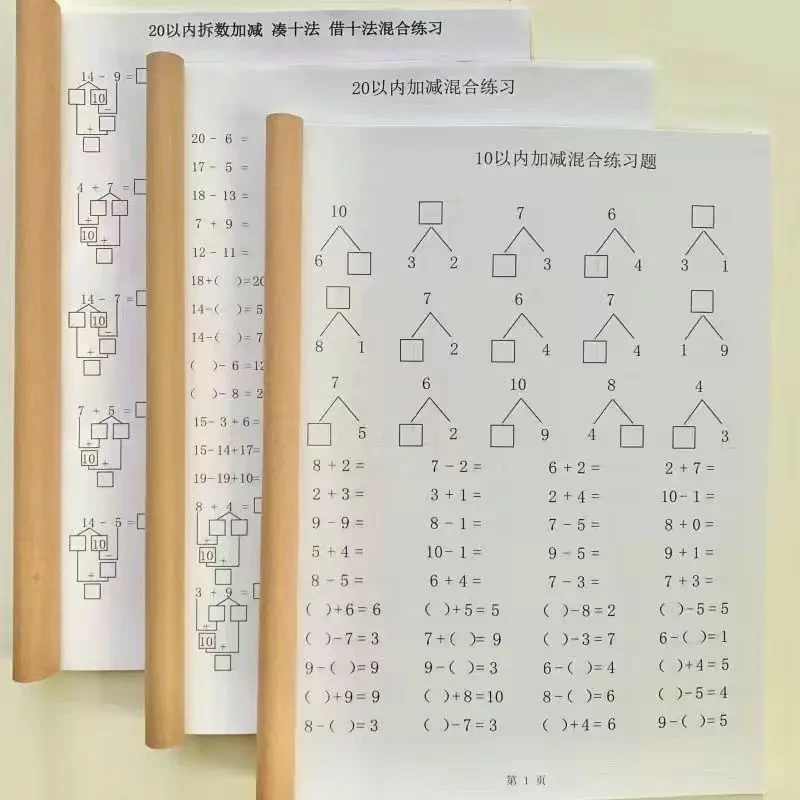 20以内拆数加减 凑十法 借十法混合练习
14 - 9 =
10
-
+
4 + 7 =
+
10
+
14 - 7 =
10
-
+
7 + 5 =
+
10
+
14 - 5 =
10
-
+
20以内加减混合练习
20 - 6 =
17 - 5 =
18 - 13 =
7 + 9 =
12 - 11 =
18+( )=20
14-( )= 5
14-( )= 7
( )- 6 =12
( )- 8 = 2
15- 3 + 6 =
15-14+17=
19-19+10=
8 + 4 =
+
10
+
3 + 9 =
+
10
+
10以内加减混合练习题
10 7 6
6 3 2 3 4 3 1
7 6 7
8 1 2 4 4 1 9
7 6 10 8 4
5 2 9 4 3
8 + 2 = 7 - 2 = 6 + 2 = 2 + 7 =
2 + 3 = 3 + 1 = 2 + 4 = 10 - 1 =
9 - 9 = 8 - 1 = 7 - 5 = 8 + 0 =
5 + 4 = 10 - 1 = 9 - 5 = 9 + 1 =
8 - 5 = 6 + 4 = 7 - 3 = 7 + 3 =
( )+6 = 6 ( )+5 = 5 ( )-8 = 2 ( )-5 = 5
( )-7 = 3 7+( )= 9 ( )-3 = 7 6-( )= 1
9-( )= 9 9-( )= 3 6-( )= 4 ( )+4 = 5
( )+9 = 9 ( )+8 =10 8-( )= 6 ( )-5 = 4
8-( )= 3 ( )-7 = 3 ( )+4 = 6 9-( )= 5
第 1 页